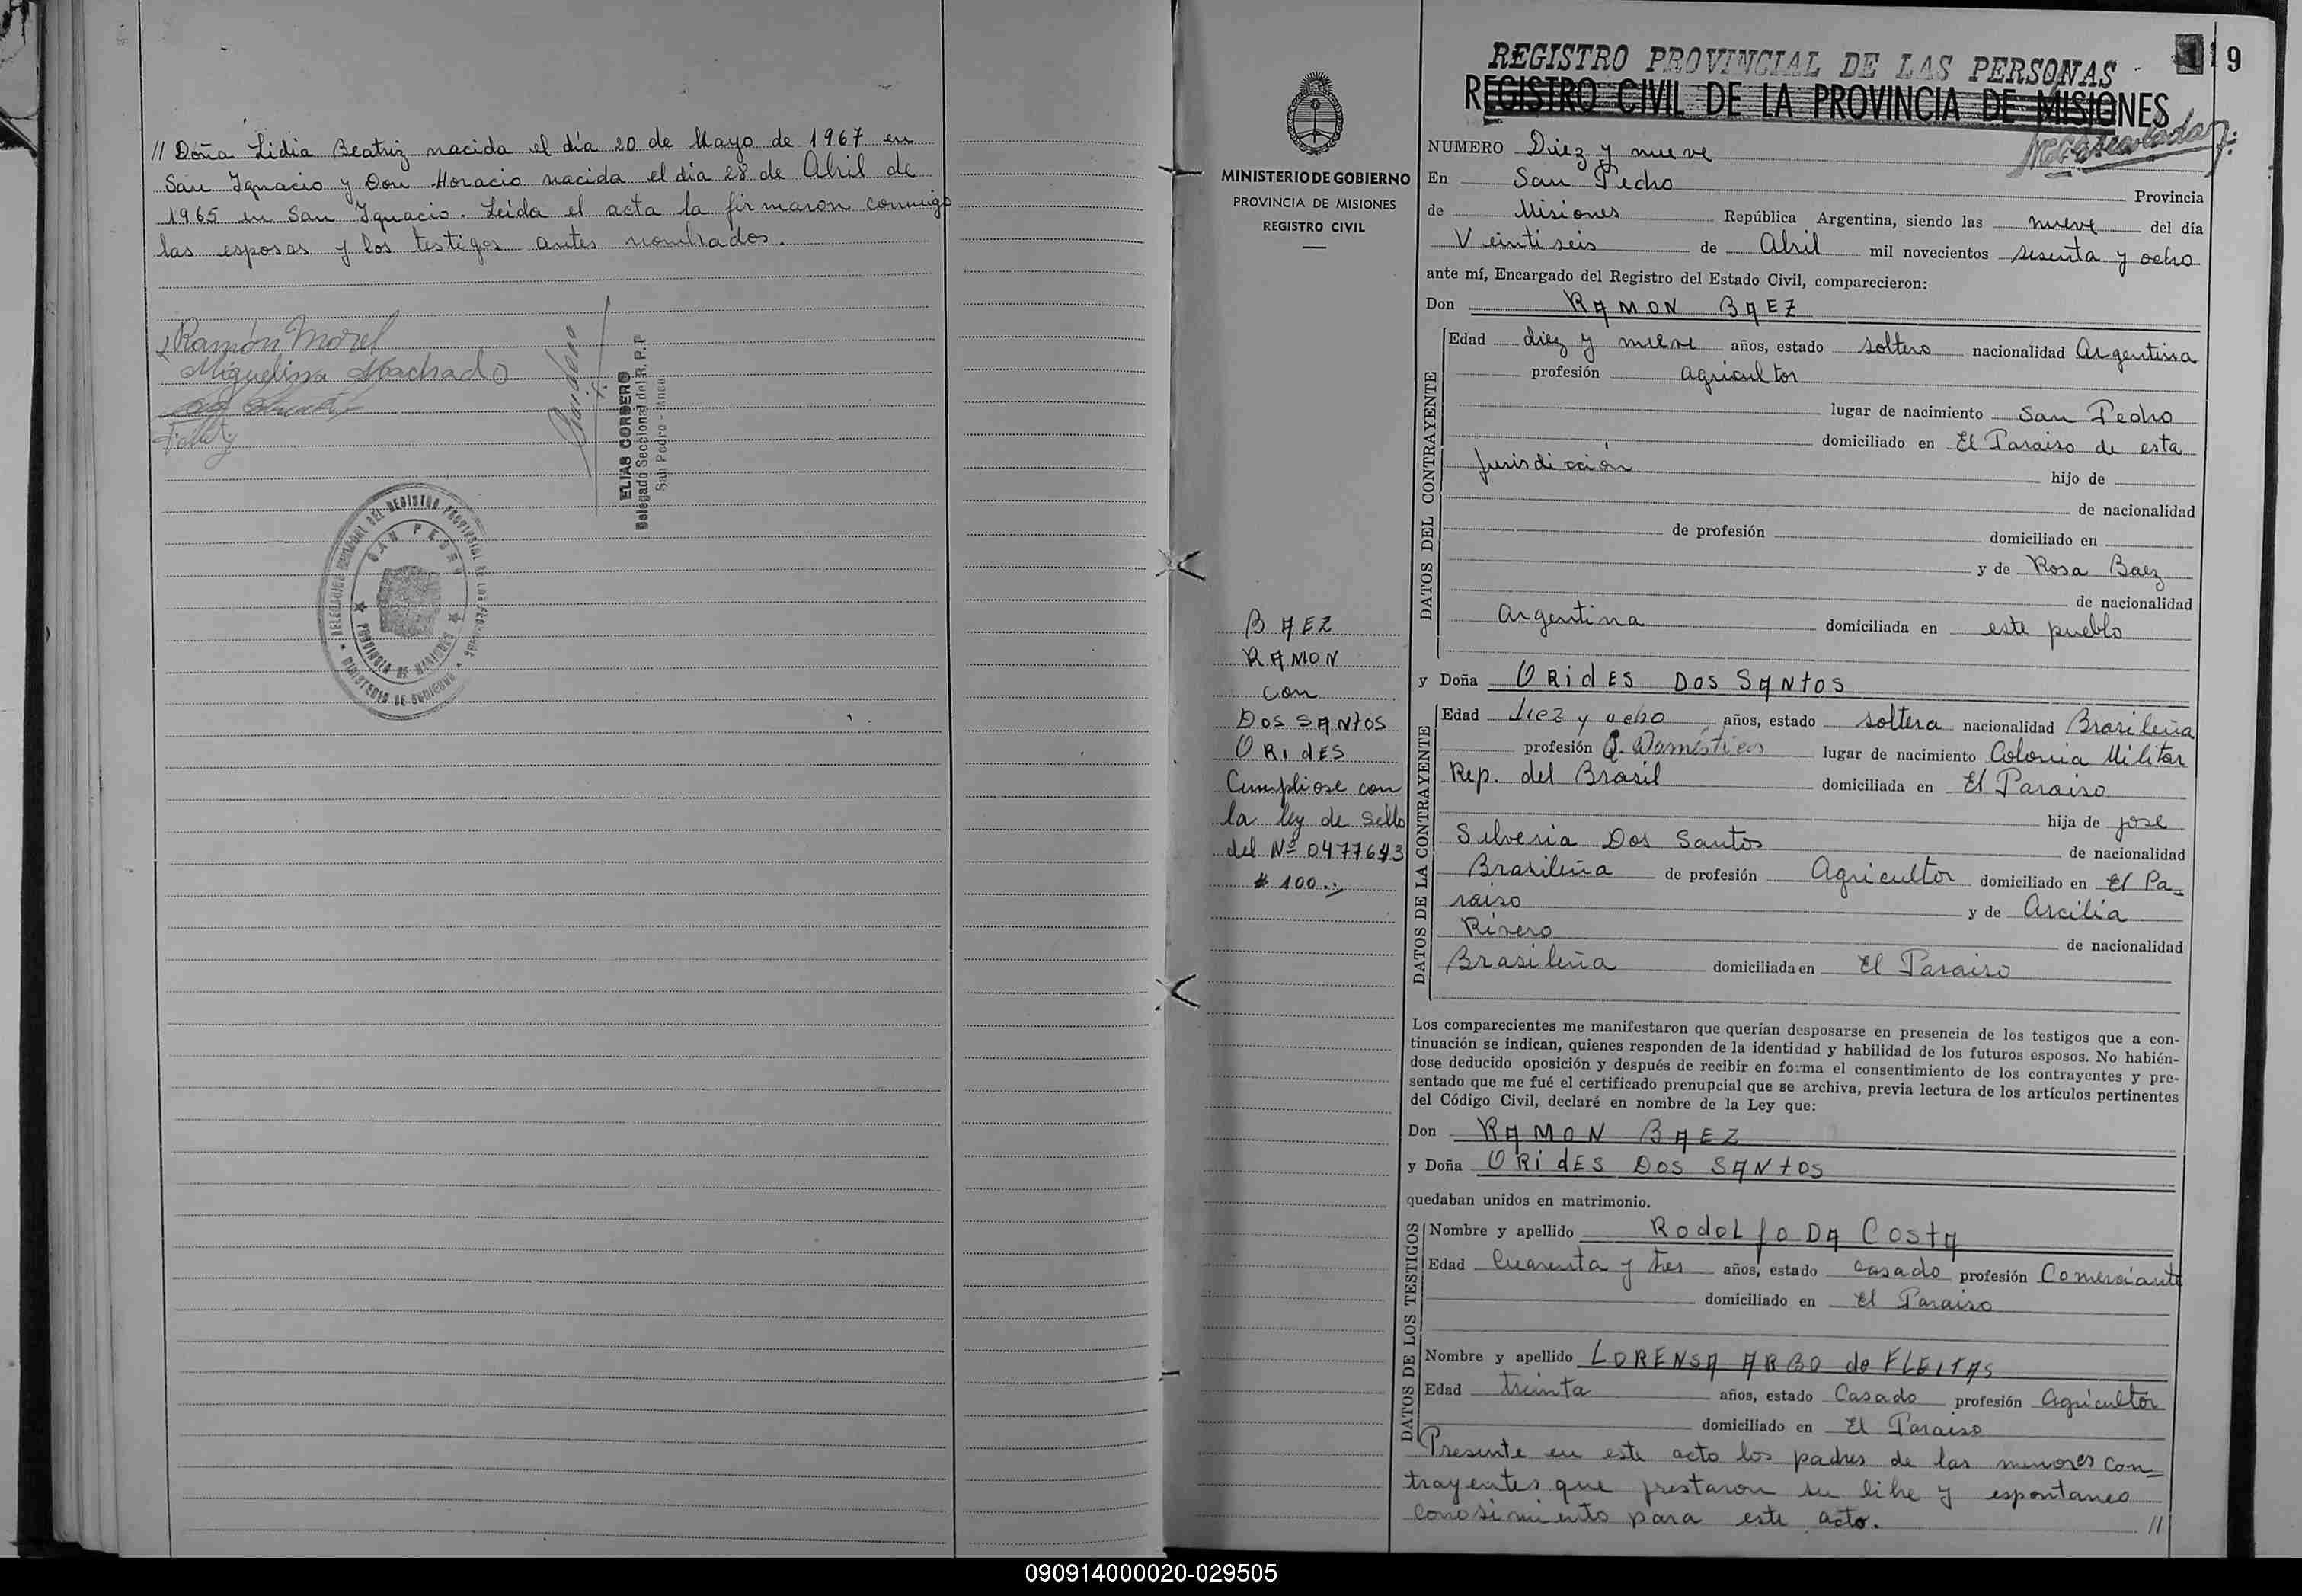 // Doña Lidia Beatriz nacida el día 20 de Mayo de 1967 en
San Ignacio y Don Horacio nacida el día 28 de Abril de
1965 en San Ignacio. Leída el acta la firmaron conmigo
las esposos y los testigos antes nombrados.
Ramón Morel
Miguelina Machado
ELIAS CORDERO
Delegado Seccional del R.P.P
San Pedro - Mnes
SAN PEDRO
PROVINCIA DE MISIONES
MINISTERIO DE GOBIERNO
MINISTERIO DE GOBIERNO
PROVINCIA DE MISIONES
REGISTRO CIVIL
BAEZ
RAMON
con
DOS SANTOS
ORIDES
Cumpliose con
la ley de Sello
del Nº 0477643
$ 100.-
REGISTRO PROVINCIAL DE LAS PERSONAS
19
REGISTRO CIVIL DE LA PROVINCIA DE MISIONES
NUMERO Diez y nueve
En San Pedro Provincia
de Misiones República Argentina, siendo las nueve del día
Veintiseis de Abril mil novecientos sesenta y ocho
ante mí, Encargado del Registro del Estado Civil, comparecieron:
Don RAMON BAEZ
DATOS DEL CONTRAYENTE
Edad diez y nueve años, estado soltero nacionalidad Argentina
profesión agricultor
lugar de nacimiento San Pedro
domiciliado en El Paraiso de esta
Jurisdicción hijo de
de nacionalidad
de profesión domiciliado en
y de Rosa Baez
de nacionalidad
Argentina domiciliada en este pueblo
y Doña ORIdES DOS SANtOS
DATOS DE LA CONTRAYENTE
Edad diez y ocho años, estado soltera nacionalidad Brasileña
profesión Q. Domésticos lugar de nacimiento Colonia Militar
Rep. del Brasil domiciliada en El Paraiso
hija de Jose
Silveria Dos Santos de nacionalidad
Brasileña de profesión Agricultor domiciliado en El Pa-
raiso y de Arcilia
Rivero de nacionalidad
Brasileña domiciliada en El Paraiso
Los comparecientes me manifestaron que querían desposarse en presencia de los testigos que a con-
tinuación se indican, quienes responden de la identidad y habilidad de los futuros esposos. No habién-
dose deducido oposición y después de recibir en forma el consentimiento de los contrayentes y pre-
sentado que me fué el certificado prenupcial que se archiva, previa lectura de los artículos pertinentes
del Código Civil, declaré en nombre de la Ley que:
Don RAMON BAEZ
y Doña ORIdES DOS SANtOS
quedaban unidos en matrimonio.
DATOS DE LOS TESTIGOS
Nombre y apellido RodoLfo DA COStA
Edad Cuarenta y tres años, estado casado profesión Comerciante
domiciliado en El Paraiso
Nombre y apellido LORENSA ARBO de FLEITAS
Edad treinta años, estado Casado profesión Agricultor
domiciliado en El Paraiso
Presente en este acto los padres de las menores con=
trayentes que prestaron su libre y espontaneo
conosimiento para este acto. //
090914000020-029505